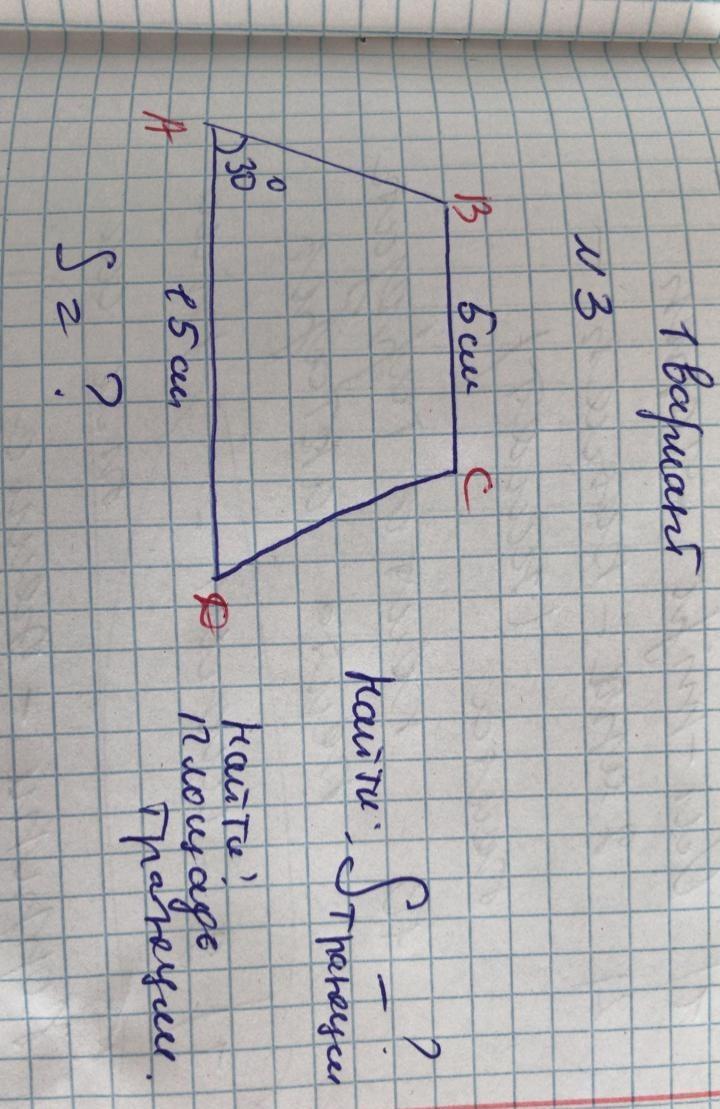 1 вариант
N 3
B
5 см
C
A
30°
15 см
D
S = ?
Найти: S трапеции - ?
Найти
площадь
трапеции.